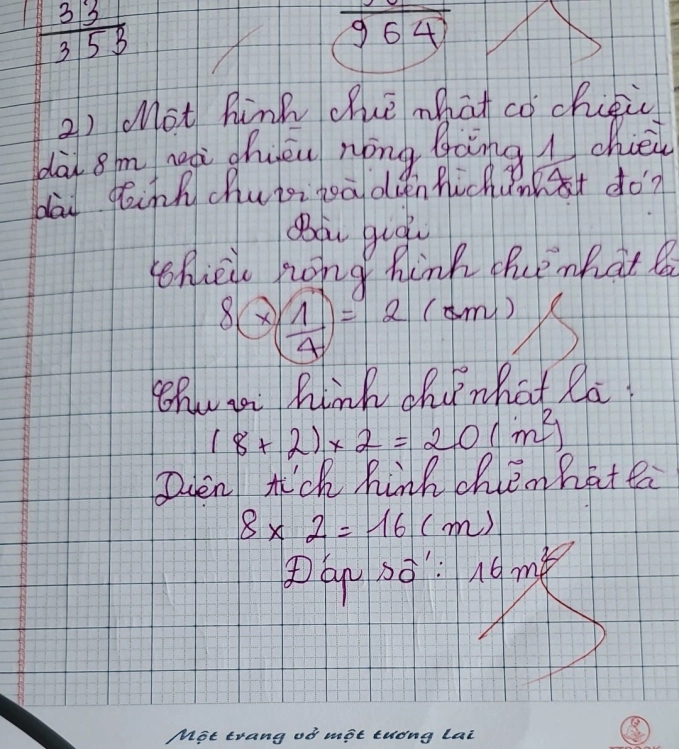 33
353
964
2) Một hình chữ nhật có chiều
dài 8m với chiều rộng bằng 1/4 chiều
dài tính chu vi và diện hìchữnhật đó?
Bài giải
Chiều rộng hình chữ nhật là
8 × 1/4 = 2 (m)
Chu vi hình chữ nhật là:
(8 + 2) × 2 = 20 (m²)
Diện tích hình chữ nhật là
8 × 2 = 16 (m)
Đáp số: 16 m²
Một trang vở một tương lai